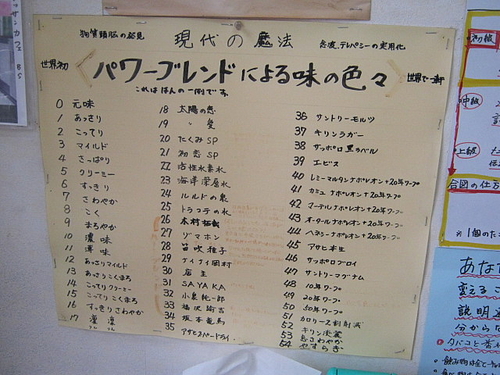 現代の魔法
念波、テレパシーの実用化
世界初
パワーブレンドによる味の色々
世界で一軒
これはほんの一例です
0 元味
1 あっさり
2 こってり
3 マイルド
4 さっぱり
5 クリーミー
6 すっきり
7 さわやか
8 こく
9 まろやか
10 濃味
11 薄味
12 あっさりマイルド
13 あっさりこくまろ
14 こってりクリーミー
15 こってりこくまろ
16 すっきりさわやか
17
18 太陽の恵
19 〃 愛
20 たくみSP
21 初恋SP
22 活性水素水
23 海洋深層水
24 ルルドの泉
25 トラコテの水
26 木村拓哉
27 ヅマホン
28 笛吹雅子
29 ナイナイ岡村
30 店主
31 SAYAKA
32 小泉純一郎
33 福沢諭吉
34 坂本龍馬
35 アサヒスーパードライ
36 サントリーモルツ
37 キリンラガー
38 サッポロ黒ラベル
39 エビス
40 レミーマルタンナポレオン+20年ワープ
41 カミュナポレオン+20年ワープ
42 マーテルナポレオン+20年ワープ
43 オータールナポレオン+20年ワープ
44 ヘネシーナポレオン+20年ワープ
45 アサヒ本生
46 サッポロブロイ
47 サントリーマグナム
48 10年ワープ
49 20年ワープ
50 50年ワープ
51 カロリー2割削減
52 キリン淡麗
53 さわやか
54 やすらぎ
初級
中級
上級
合図の仕方
※1個のた
あなた
変える
説明
分から
タバコと